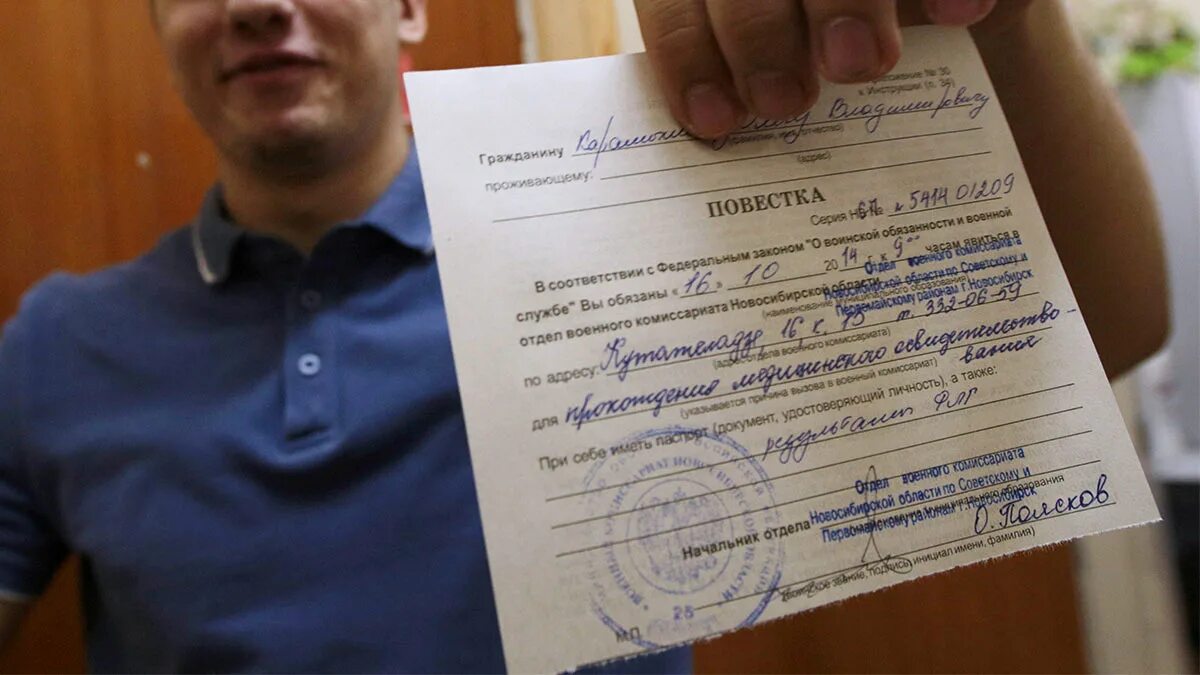 Приложение № 30
к Инструкции (п. 34)
Гражданину Владимировичу
(фамилия, имя, отчество)
проживающему:
(адрес)
ПОВЕСТКА
Серия НБ № 5414 01209
В соответствии с Федеральным законом "О воинской обязанности и военной
службе" Вы обязаны « 16 » 10 2014 г. к 9⁰⁰ часам явиться в
отдел военного комиссариата Новосибирской области
Отдел военного комиссариата
Новосибирской области по Советскому и
Первомайскому районам г.Новосибирск
(наименование муниципального образования)
по адресу: Кутателадзе, 16 к. т. 332-06-59
(адрес отдела военного комиссариата)
для прохождения медицинского освидетельство-
вания
(указывается причина вызова в военный комиссариат)
При себе иметь паспорт (документ, удостоверяющий личность), а также:
результат ФЛГ
Начальник отдела
Отдел военного комиссариата
Новосибирской области по Советскому и
Первомайскому районам г.Новосибирск
муниципального образования
О. Полясков
(воинское звание, подпись, инициал имени, фамилия)
ВОЕННЫЙ КОМИССАРИАТ НОВОСИБИРСКОЙ ОБЛАСТИ
М.П. 28